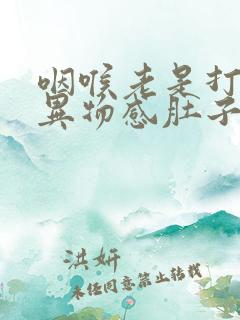 咽喉老是打
异物感肚子
洪妍
未经同意禁止转载